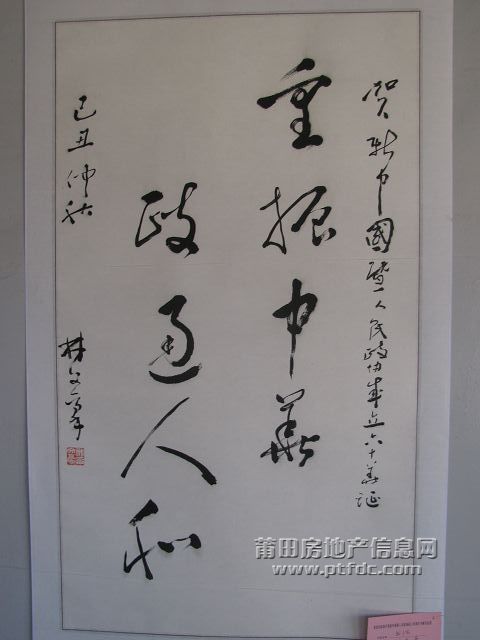 贺新中国暨人民政协成立六十华诞
重振中华
政通人和
己丑仲秋
林文
莆田房地产信息网
www.ptfdc.com